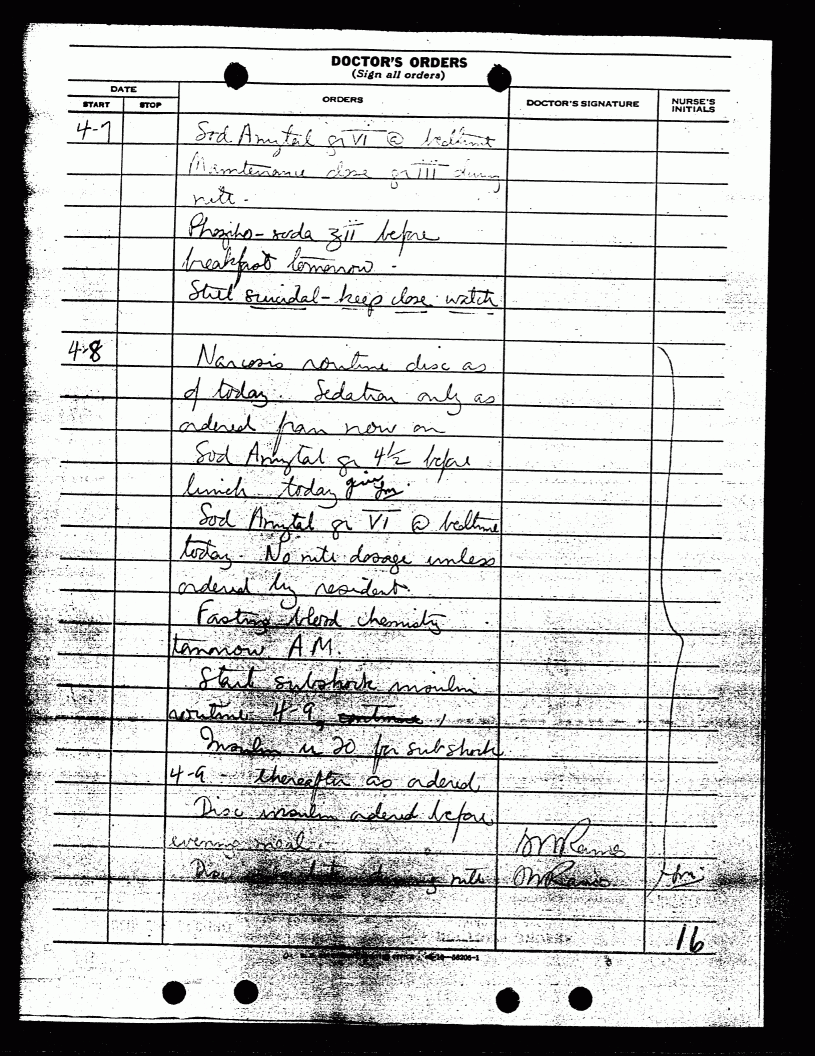 DOCTOR'S ORDERS
(Sign all orders)
DATE
START STOP ORDERS DOCTOR'S SIGNATURE NURSE'S INITIALS
4-7 Sod Amytal gr VI @ bedtime
Maintenance dose gr III during
nite.
Phospho-soda ʒii before
breakfast tomorrow -
Still suicidal - keep close watch
4-8 Narcosis routine disc as
of today. Sedation only as
ordered from now on
Sod Amytal gr 4½ before
lunch today give Im.
Sod Amytal gr VI @ bedtime
today. No nite dosage unless
ordered by resident.
Fasting blood chemistry
tomorrow A.M.
Start subshock insulin
routine 4-9,
Insulin u 20 for subshock
4-9 - thereafter as ordered
Disc insulin ordered before
evening meal.
Disc during nite
16